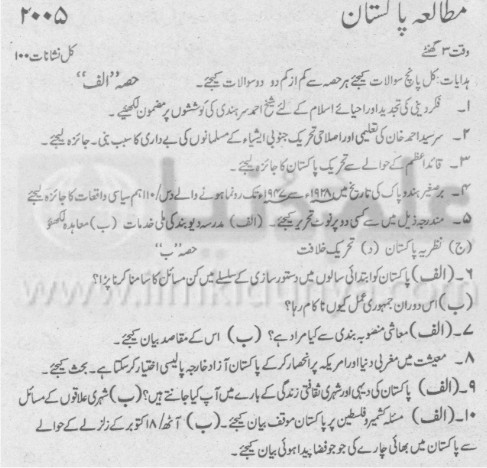 مطالعہ پاکستان ۲۰۰۵
وقت ۳ گھنٹے کل نشانات ۱۰۰
ہدایات: کل پانچ سوالات کیجئے ہر حصہ سے کم از کم دو دو سوالات کیجئے۔ حصہ "الف"
۱۔ فکر دینی کی تجدید اور احیائے اسلام کے لئے شیخ احمد سرہندی کی کوششوں پر مضمون لکھیئے۔
۲۔ سرسید احمد خان کی تعلیمی اور اصلاحی تحریک جنوبی ایشیاء کے مسلمانوں کی بے داری کا سبب بنی۔ جائزہ لیجئے۔
۳۔ قائد اعظم کے حوالے سے تحریک پاکستان کا جائزہ لیجئے۔
۴۔ برصغیر ہندو پاک کی تاریخ میں ۱۹۲۸ء سے ۱۹۴۷ء تک رونما ہونے والے دس/۱۰ اہم سیاسی واقعات کا جائزہ لیجئے
۵۔ مندرجہ ذیل میں سے کسی دو پر نوٹ تحریر کیجئے۔ (الف) مدرسہ دیوبند کی ملی خدمات (ب) معاہدہ لکھنؤ
(ج) نظریہ پاکستان (د) تحریک خلافت حصہ "ب"
۶۔ (الف) پاکستان کو ابتدائی سالوں میں دستور سازی کے سلسلے میں کن مسائل کا سامنا کرنا پڑا؟
(ب) اس دوران جمہوری عمل کیوں ناکام رہا؟
۷۔ (الف) معاشی منصوبہ بندی سے کیا مراد ہے؟ (ب) اس کے مقاصد بیان کیجئے۔
۸۔ معیشت میں مغربی دنیا اور امریکہ پر انحصار کر کے پاکستان آزاد خارجہ پالیسی اختیار کر سکتا ہے۔ بحث کیجئے۔
۹۔ (الف) پاکستان کی دیہی اور شہری ثقافتی زندگی کے بارے میں آپ کیا جانتے ہیں؟ (ب) شہری علاقوں کے مسائل
۱۰۔ (الف) مسئلہ کشمیر و فلسطین پر پاکستان موقف بیان کیجئے۔ (ب) آٹھ/۱۸ اکتوبر کے زلزلے کے حوالے
سے پاکستان میں بھائی چارے کی جو جو فضا پیدا ہوئی بیان کیجئے۔
www.ilmkidunya.com